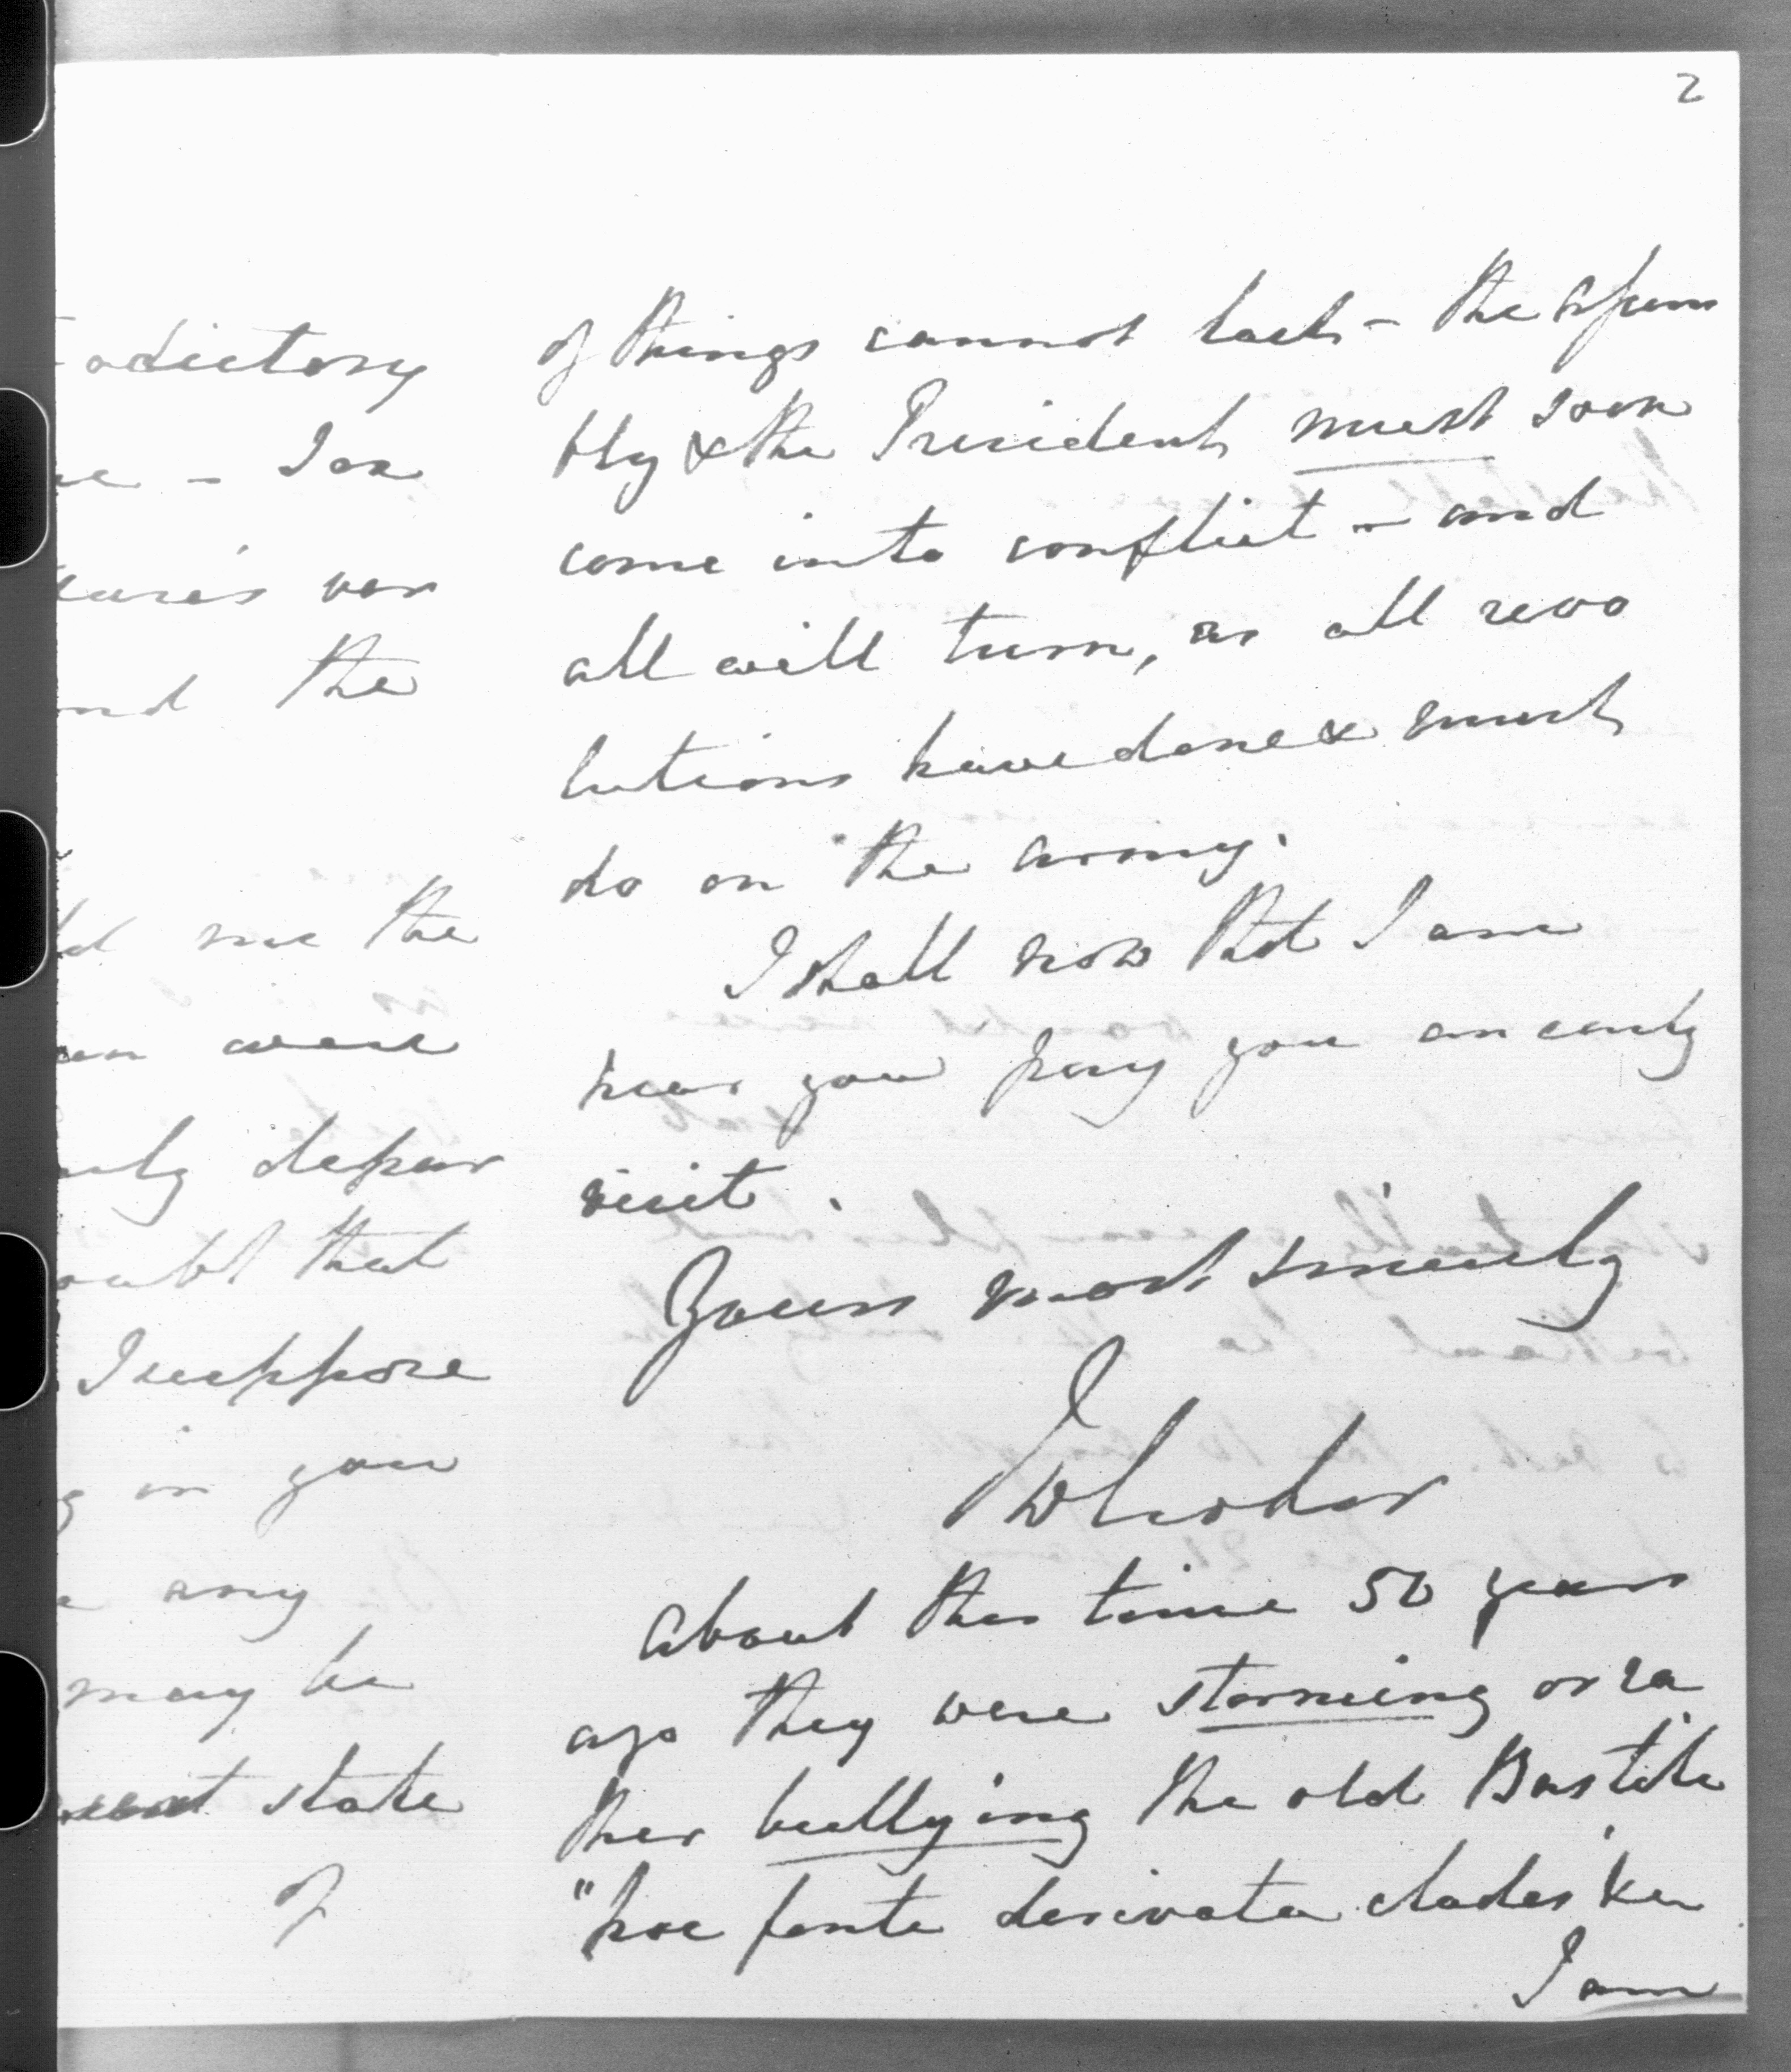 2
adictory
- Ion
ver
nd the
me the
were
depar
oubt that
I suppose
in you
any
may be
state
of
of things cannot last - the assem
bly & the President must soon
come into conflict - and
all will turn, as all revo
lutions have done & must
do on the army.
I shall now that I am
near you pay you an early
visit.
Yours most sincerely
JWCroker
About this time 50 years
ago they were storming or ra
ther bullying the old Bastile
"hoc fonte derivata clades" &c
I am